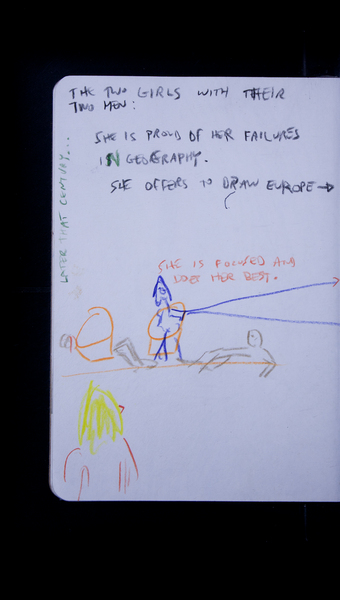 THE TWO GIRLS WITH THEIR
TWO MEN:
SHE IS PROUD OF HER FAILURES
IN GEOGRAPHY.
SHE OFFERS TO DRAW EUROPE →
LATER THAT CENTURY...
SHE IS FOCUSED AND
DOES HER BEST.